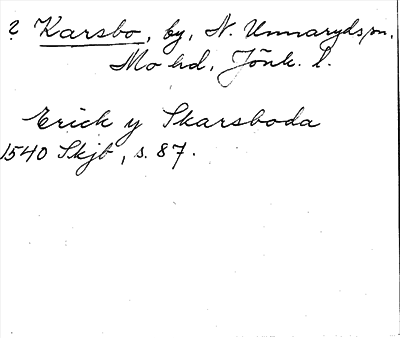 ? Karsbo, by, N. Unnaryds sn,
Mo hd, Jönk. l.
Erick y Skarsboda
1540 Skjb, s. 87.